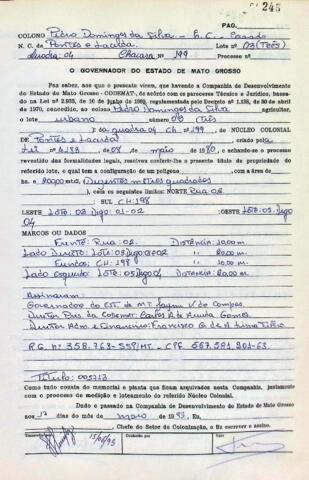 PAG. 245
COLONO Pedro Domingos da Silva - B.C. Casado
N. C. de Pontes e Lacerda Lote nº 03 (Três)
Quadra: 04 Chacara nº 199 Processo nº
O GOVERNADOR DO ESTADO DE MATO GROSSO
Faz saber aos que o presente virem, que havendo a Companhia de Desenvolvimento
do Estado de Mato Grosso - CODEMAT, de acordo com os pareceres Técnico e Jurídico, basea-
do na Lei nº 2.033, de 16 de junho de 1969, regulamentada pelo Decreto nº 1.138, de 30 de abril
de 1970, concedido, ao colono Pedro Domingos da Silva, agricultor,
o lote urbano número 03 Três
da quadra 04 Ch. 199, de NÚCLEO COLONIAL
de Pontes e Lacerda, criado pelo
Lei nº 4.133 de 08 de maio de 1980, e achando-se o processo
revestido das formalidades legais, resolveu conferir-lhe o presente título de propriedade do
referido lote, o qual tem a configuração de um polígono com a área de
hs 200,00 mts2, Duzentos metros quadrados
e, cujos os seguintes limites: NORTE Rua 02
SUL CH: 198
LESTE Lote: 02 Digo 01-02 OESTE Lote: 05 Digo
04
MARCOS OU DADOS
Frente: Rua: 02. Distância: 10,00 m.
Lado Direito: Lote: 03 Digo 01-02 " 20,00 m.
Fundos: CH: 198 " 10,00 m
Lado Esquerdo: Lote: 05 Digo 04 Distância: 20,00 m.
Assinaram:
Governador do Est. de M.T. Jayme V. de Campos.
Diretor Pres da Codemat: Carlos A. de Almeida Gomes
Diretor Adm e Financeiro: Francisco G. de A. Lima Filho
R.G. nº 358.763-SSP/MT. - CPF. 567.581.901-63.
Título: 005713.
Como tudo consta do memorial e planta que ficam arquivados nesta Companhia, juntamente
com o processo de medição e loteamento do referido Núcleo Colonial.
Dado e passado na Companhia de Desenvolvimento do Estado de Mato Grosso
aos 17 dias do mês de maio de 1993, Eu,
Chefe do Setor de Colonização, o fiz escrever e assino.
Conferido por
Visto